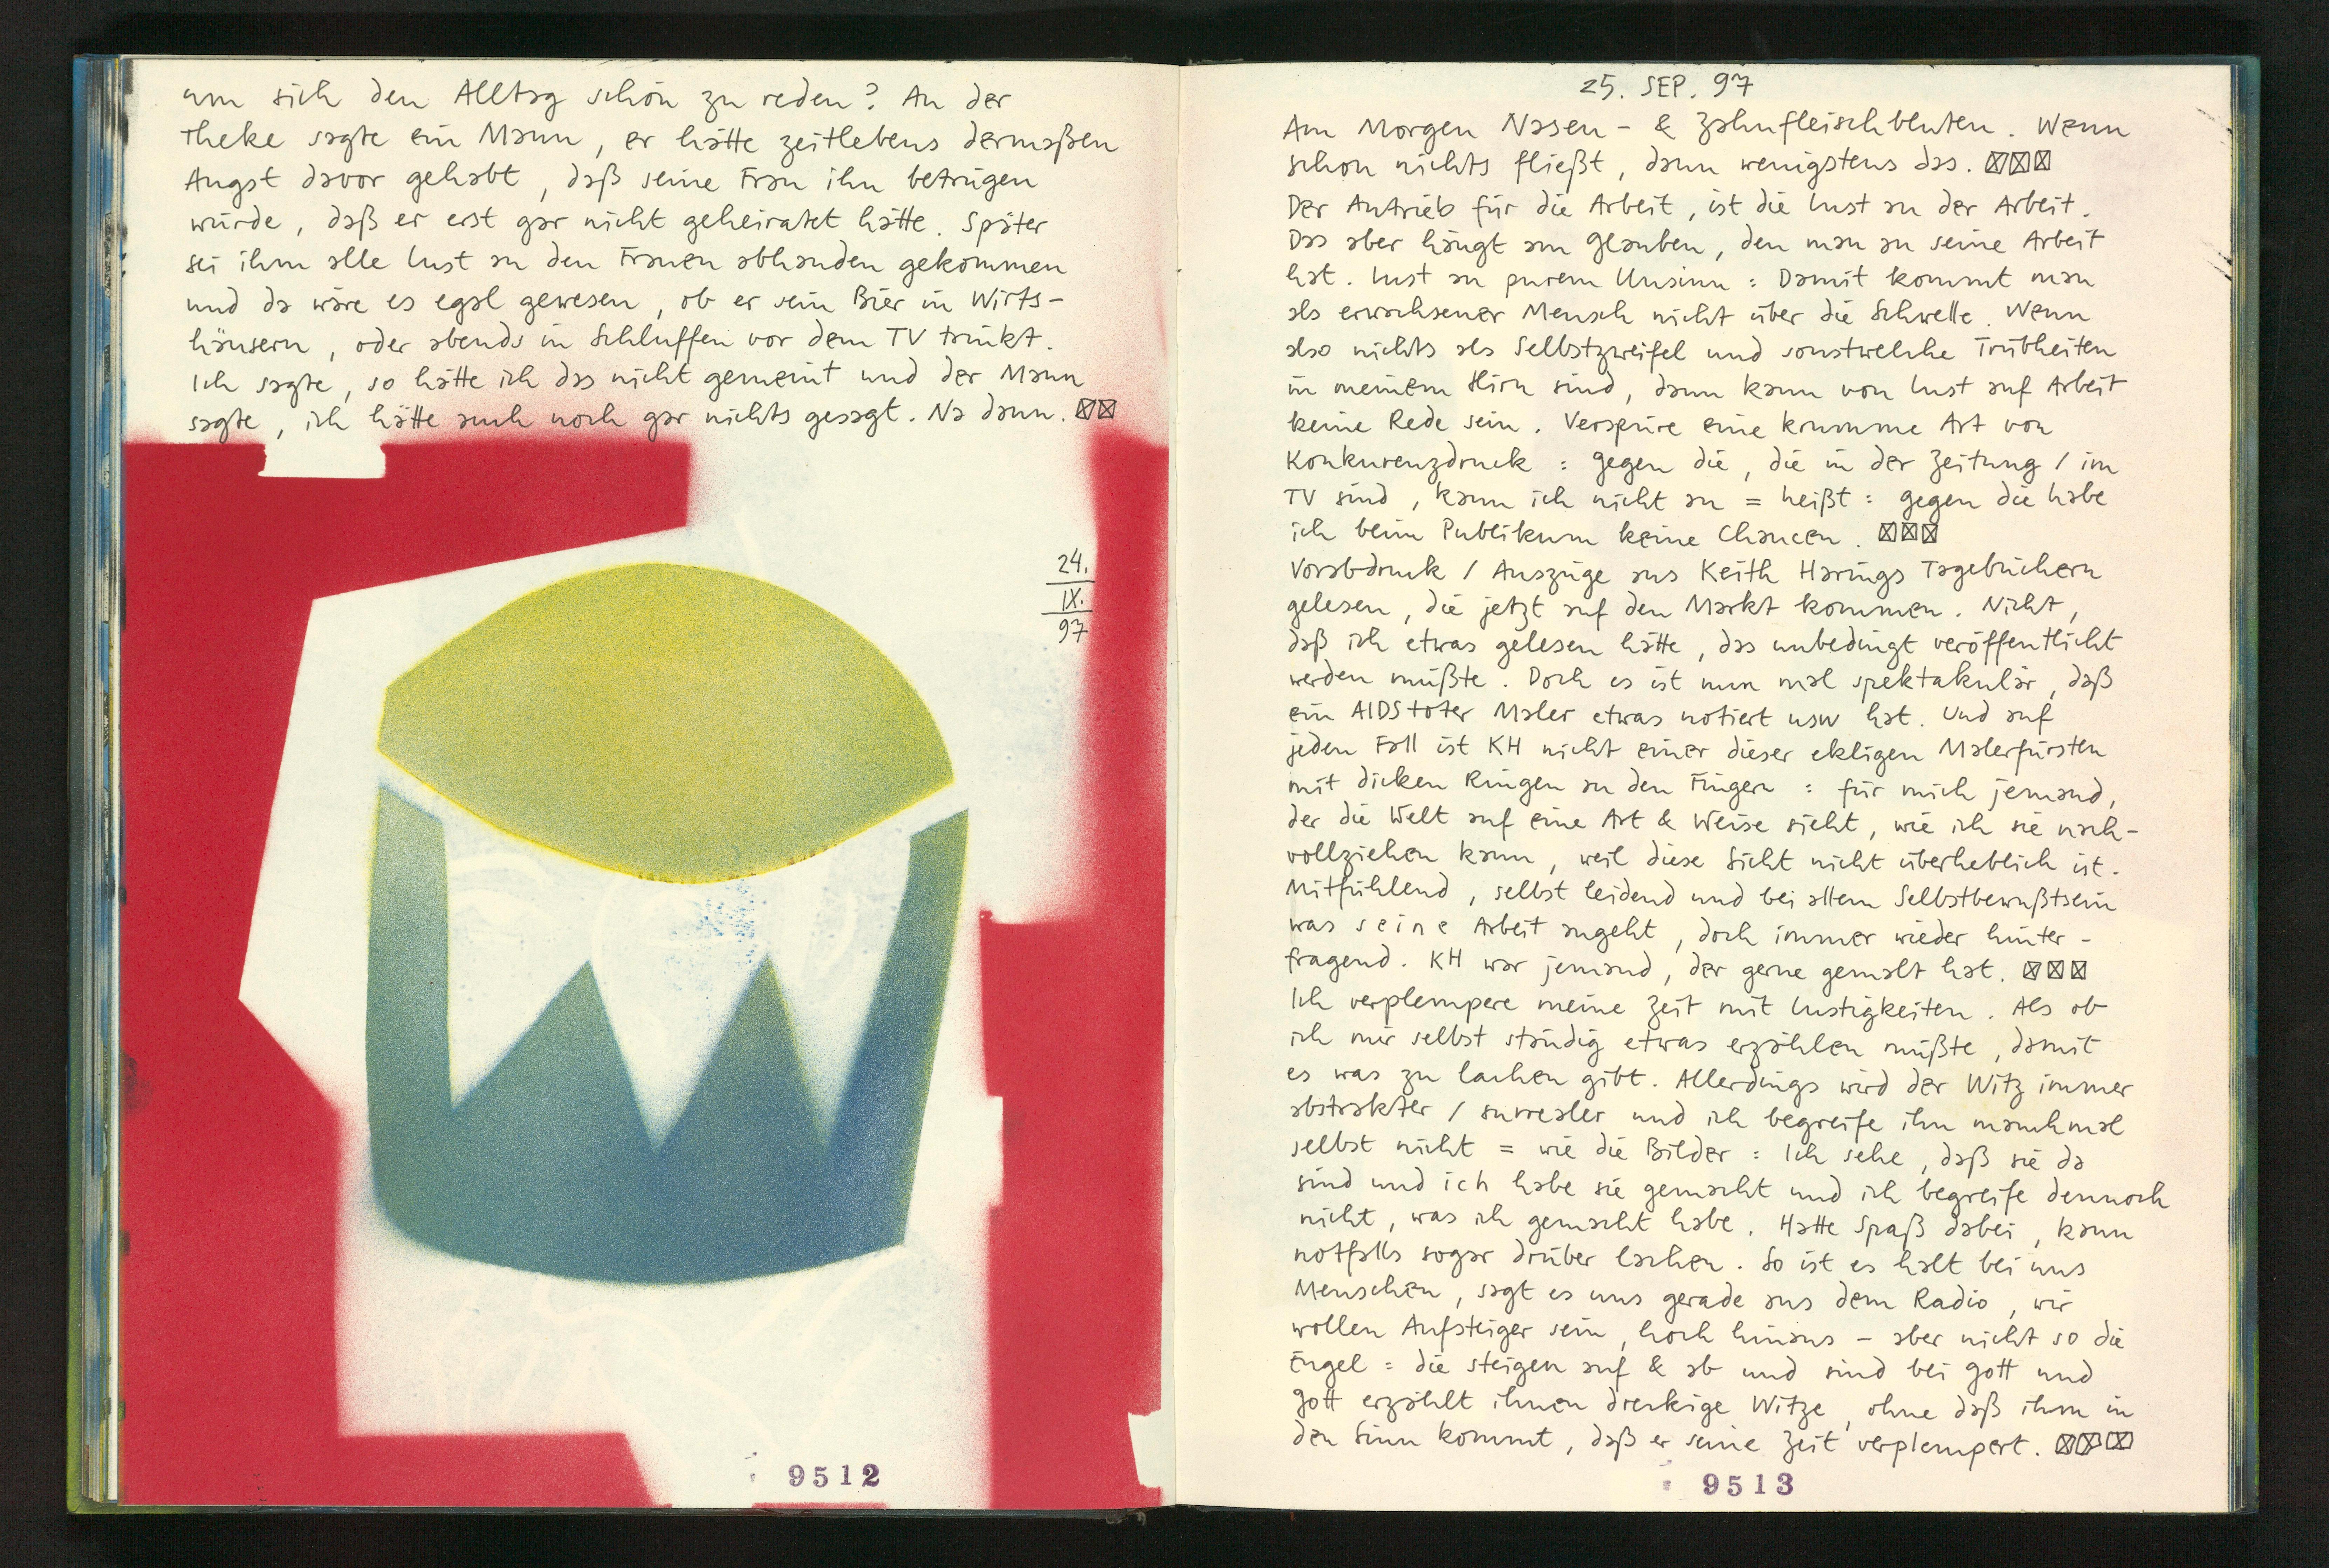 um sich den Alltag schön zu reden? An der
Theke sagte ein Mann, er hätte zeitlebens dermaßen
Angst davor gehabt, daß seine Frau ihn betrügen
würde, daß er erst gar nicht geheiratet hätte. Später
sei ihm alle Lust an den Frauen abhanden gekommen
und da wäre es egal gewesen, ob er sein Bier in Wirts-
häusern, oder abends in Schluffen vor dem TV trinkt.
Ich sagte, so hätte ich das nicht gemeint und der Mann
sagte, ich hätte auch noch gar nichts gesagt. Na dann. ☒☒
24.
IX.
97
9512
25. SEP. 97
Am Morgen Nasen- & Zahnfleischbluten. Wenn
schon nichts fließt, dann wenigstens das. ☒☒☒
Der Antrieb für die Arbeit, ist die Lust an der Arbeit.
Das aber hängt am Glauben, den man an seine Arbeit
hat. Lust an purem Unsinn: Damit kommt man
als erwachsener Mensch nicht über die Schwelle. Wenn
also nichts als Selbstzweifel und sonstwelche Trübheiten
in meinem Hirn sind, dann kann von Lust auf Arbeit
keine Rede sein. Verspüre eine krumme Art von
Konkurenzdruck: gegen die, die in der Zeitung / im
TV sind, kann ich nicht an = heißt: gegen die habe
ich beim Publikum keine Chancen. ☒☒☒
Vorabdruck / Auszüge aus Keith Harings Tagebüchern
gelesen, die jetzt auf den Markt kommen. Nicht,
daß ich etwas gelesen hätte, das unbedingt veröffentlicht
werden müßte. Doch es ist nun mal spektakulär, daß
ein AIDStoter Maler etwas notiert usw hat. Und auf
jeden Fall ist KH nicht einer dieser ekligen Malerfürsten
mit dicken Ringen an den Fingern: für mich jemand,
der die Welt auf eine Art & Weise sieht, wie ich sie nach-
vollziehen kann, weil diese Sicht nicht überheblich ist.
Mitfühlend, selbst leidend und bei allem Selbstbewußtsein
was seine Arbeit angeht, doch immer wieder hinter-
fragend. KH war jemand, der gerne gemalt hat. ☒☒☒
Ich verplempere meine Zeit mit Lustigkeiten. Als ob
ich mir selbst ständig etwas erzählen müßte, damit
es was zu lachen gibt. Allerdings wird der Witz immer
abstrakter / surrealer und ich begreife ihn manchmal
selbst nicht = wie die Bilder: Ich sehe, daß sie da
sind und ich habe sie gemacht und ich begreife dennoch
nicht, was ich gemacht habe. Hatte Spaß dabei, kann
notfalls sogar drüber lachen. So ist es halt bei uns
Menschen, sagt es uns gerade aus dem Radio, wir
wollen Aufsteiger sein, hoch hinaus - aber nicht so die
Engel = die steigen auf & ab und sind bei Gott und
Gott erzählt ihnen dreckige Witze, ohne daß ihm in
den Sinn kommt, daß er seine Zeit verplempert. ☒☒☒
9513